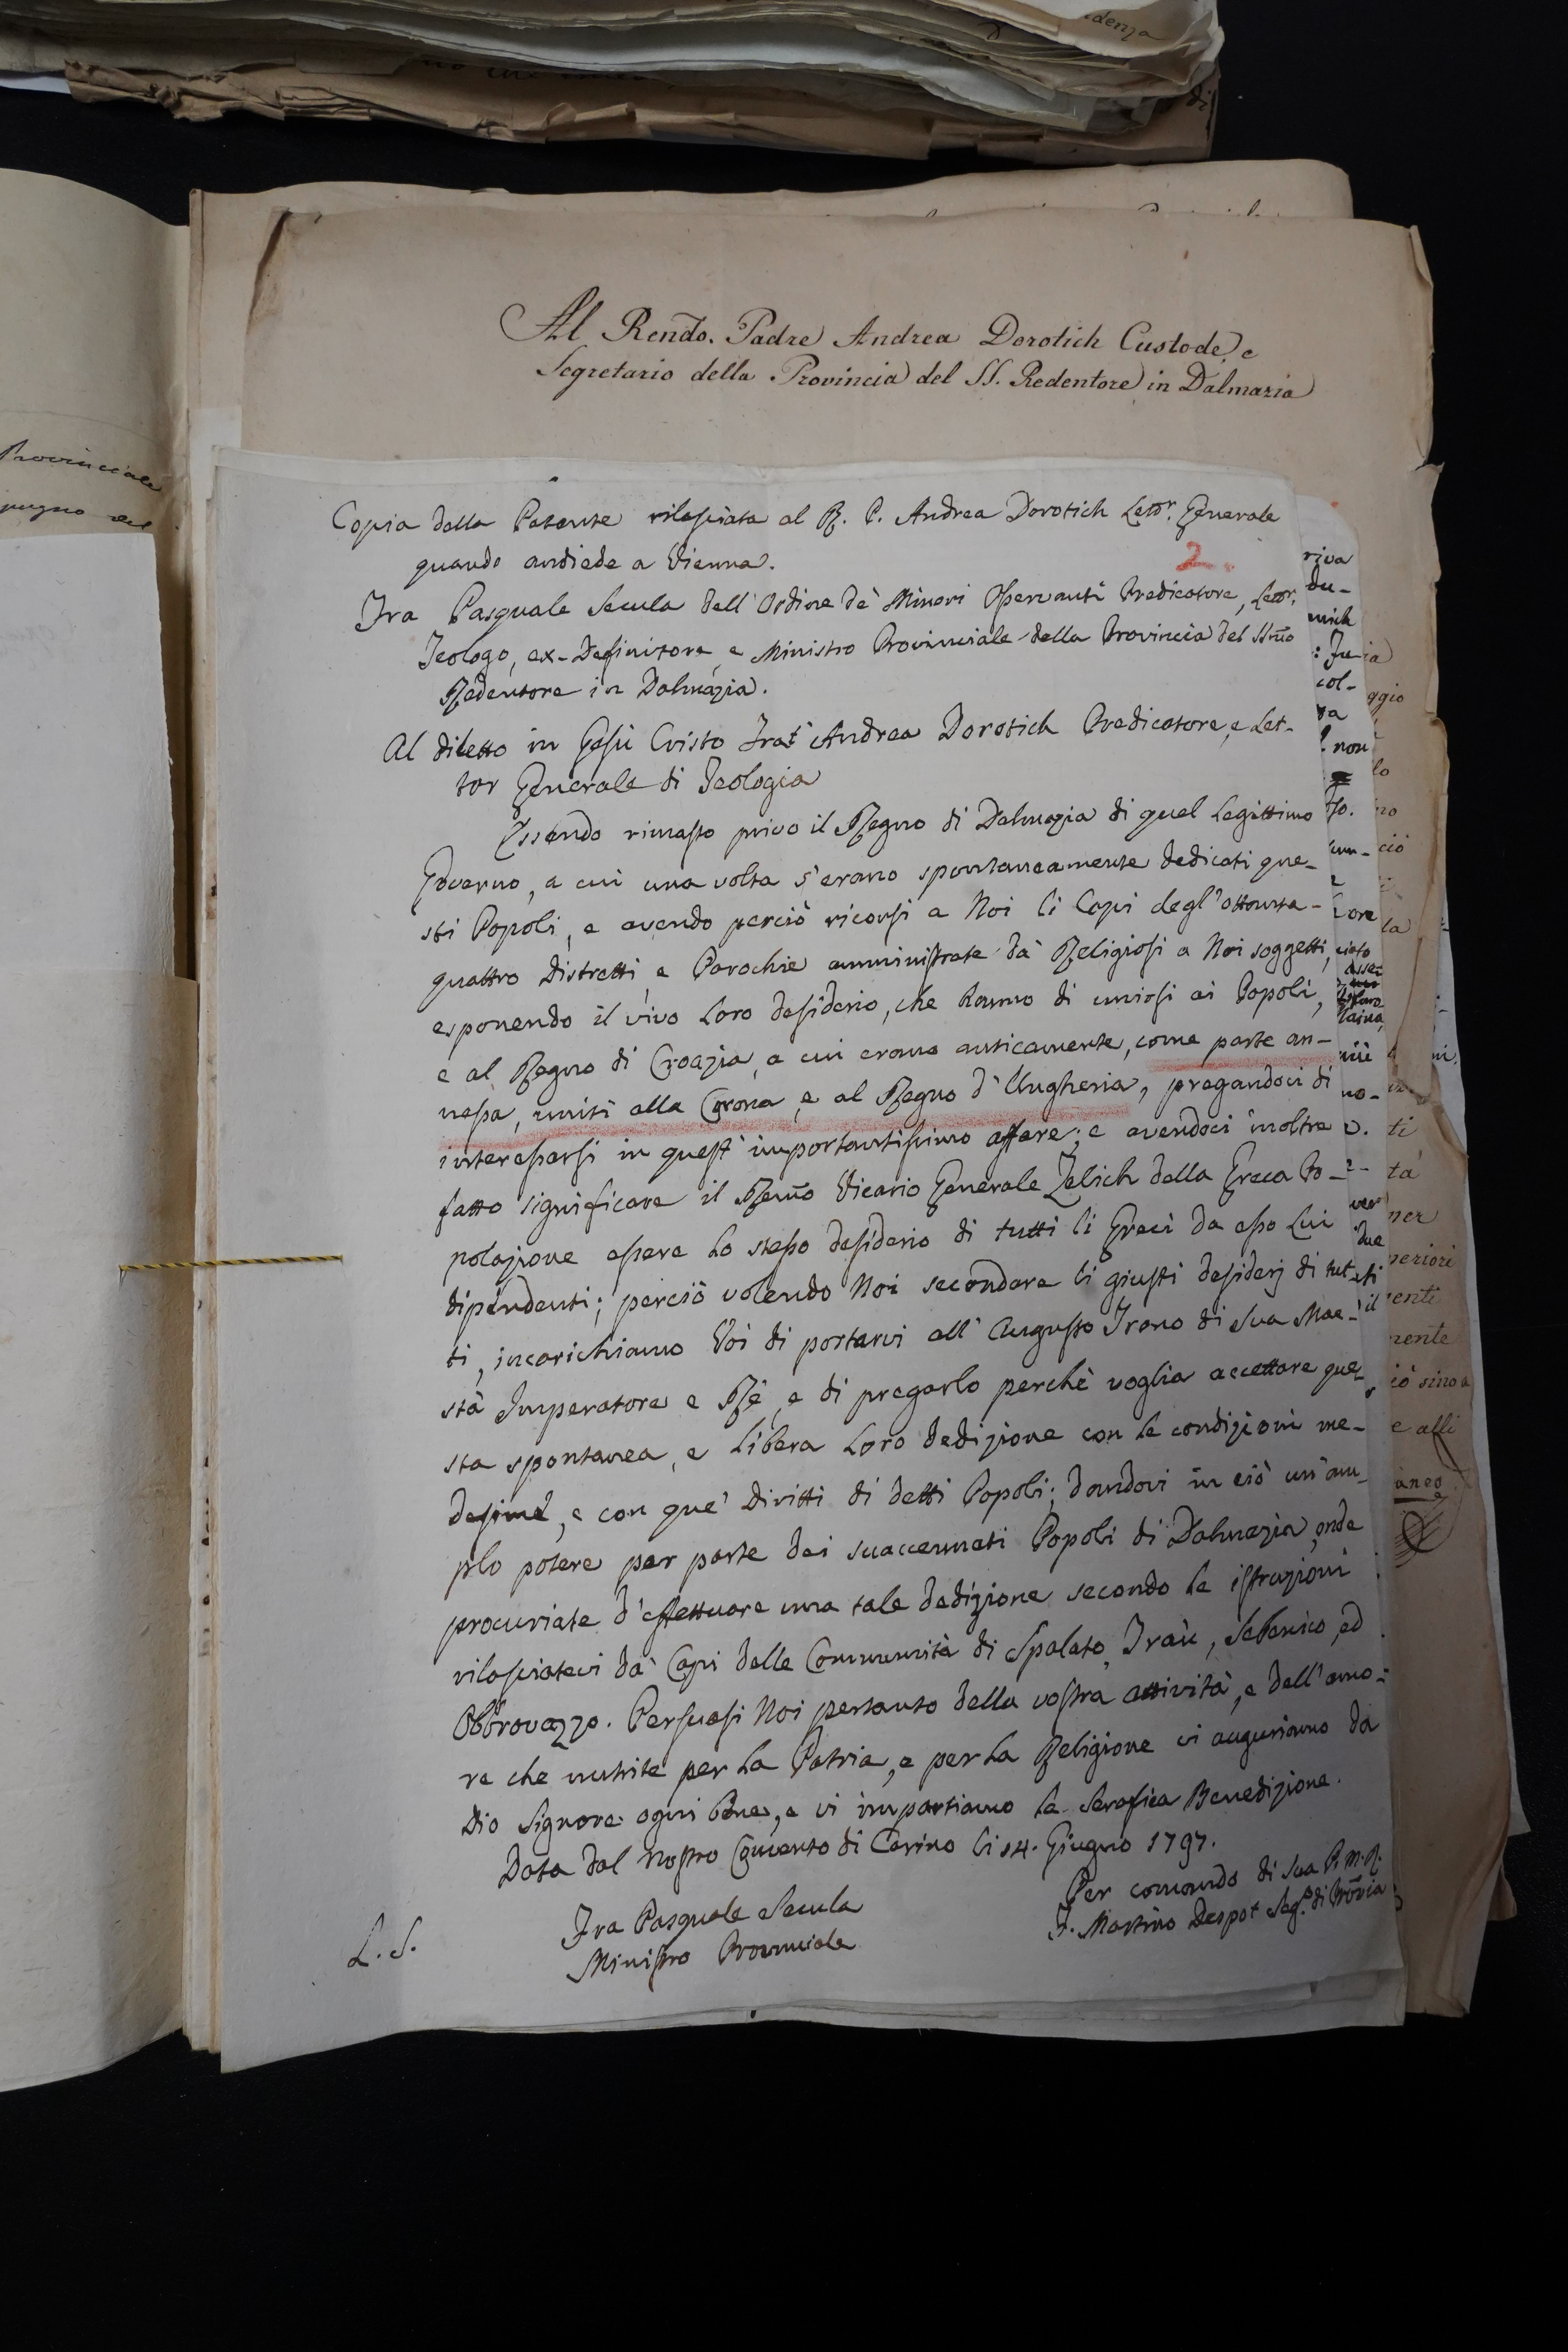 Al Rendo. Padre Andrea Dorotich Custode, e
Segretario della Provincia del SS. Redentore in Dalmazia
Copia della Patente rilasciata al R. P. Andrea Dorotich Lettr. Generale
quando andiede a Vienna.
2.
Fra Pasquale Secula dell' Ordine de' Minori Osservanti Predicatore, Lettr.
Teologo, ex-Definitore, e Ministro Provinciale della Provincia del SSmo
Redentore in Dalmazia.
Al diletto in Gesù Cristo Frat' Andrea Dorotich Predicatore, e Let-
tor Generale di Teologia
Essendo rimasto privo il Regno di Dalmazia di quel Legittimo
Governo, a cui una volta s'erano spontaneamente dedicati que-
sti Popoli, e avendo perciò ricorsi a Noi li Capi degl'ottanta-
quattro Distretti, e Parochie amministrate da' Religiosi a Noi soggetti,
esponendo il vivo Loro desiderio, che hanno di unirsi ai Popoli,
e al Regno di Croazia, a cui erano anticamente, come parte an-
nessa, uniti alla Corona, e al Regno d' Ungheria, pregandoci di
interessarsi in quest' importantissimo affare; e avendoci inoltre
fatto significare il Remo Vicario Generale Zelich della Greca Po-
polazione essere lo stesso desiderio di tutti li Greci da esso Lui
dipendenti; perciò volendo Noi secondare li giusti desiderj di tut-
ti, incarichiamo Voi di portarvi all' Augusto Trono di Sua Mae-
stà Imperatore e Rè, e di pregarlo perchè voglia accettare que-
sta spontanea, e Libera Loro dedizione con le condizioni me-
desime, e con que' Diritti di detti Popoli; dandovi in ciò un'am-
plo potere per parte dei suaccennati Popoli di Dalmazia, onde
procuriate d'effettuare una tale dedizione secondo le istruzioni
rilasciatevi da' Capi delle Communità di Spalato, Traù, Sebenico, ed
Obbrovazzo. Persuasi Noi pertanto della vostra attività, e dell'amo-
re che nutrite per la Patria, e per la Religione vi auguriamo da
Dio Signore ogni bene, e vi impartiamo la Serafica Benedizione.
Data dal nostro Convento di Carino li 14. Giugno 1797.
Fra Pasquale Secula
Ministro Provinciale
Per comando di Sua P. M. R.
F. Martino Despot Seg.o di Provcia
L. S.